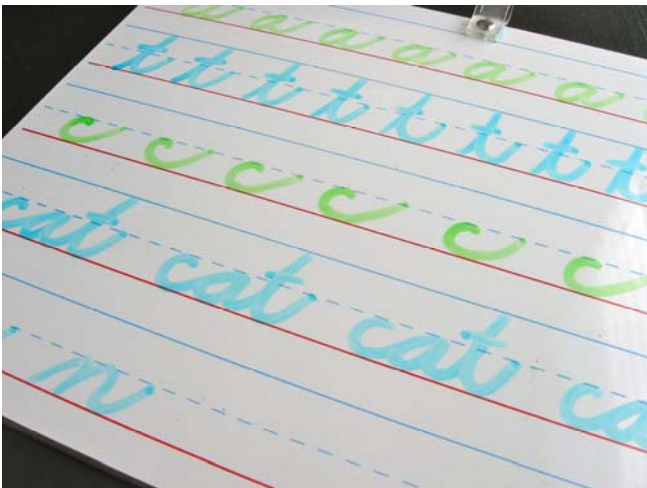 a a a a a a
t t t t t t t t
c c c c c c
cat cat cat ca
n